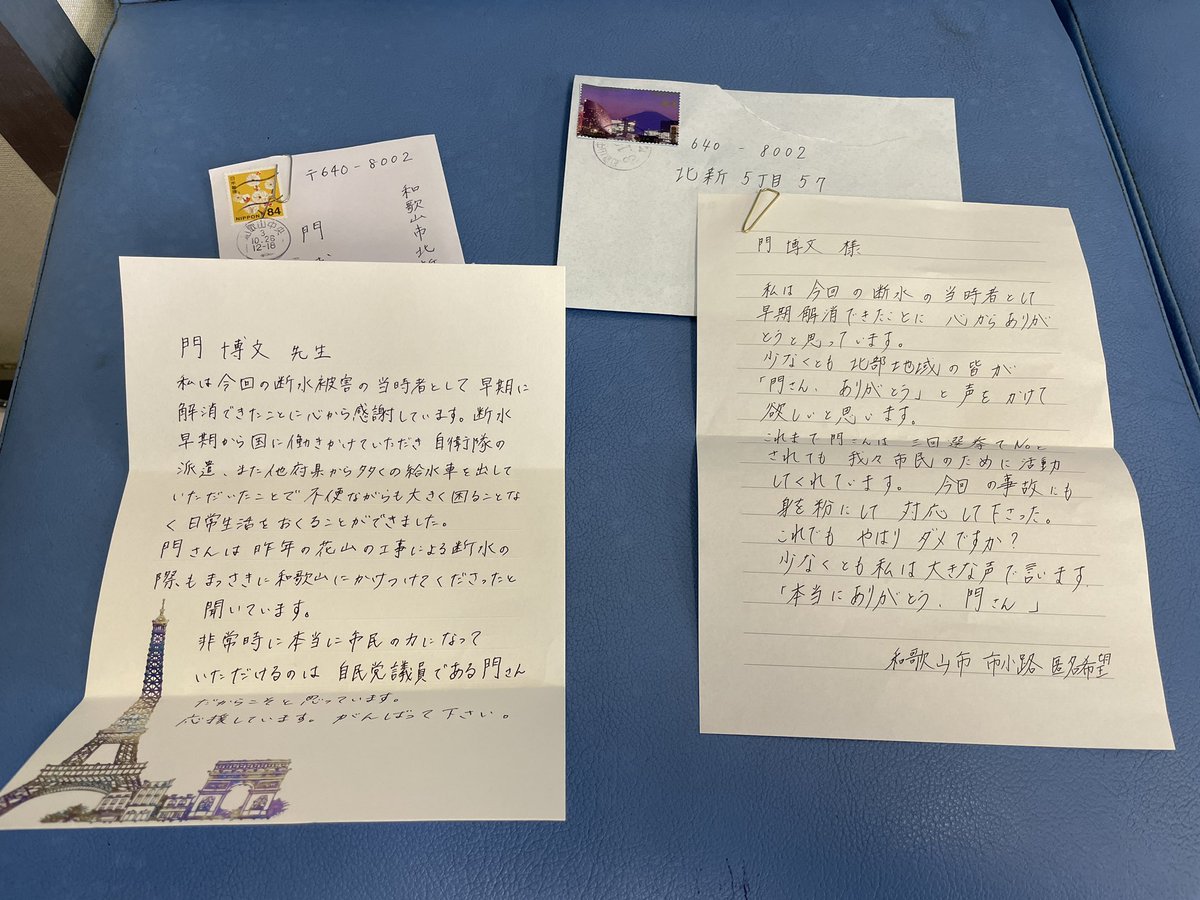 〒640-8002
和歌山市北
門
NIPPON 84
和歌山中央
3
10.26
12-18
640-8002
北新5丁目57
門 博文 先生
私は今回の断水被害の当時者として早期に
解消できたことに心から感謝しています。断水
早期から国に働きかけていただき 自衛隊の
派遣、また他府県から多くの給水車を出して
いただいたことで 不便ながらも大きく困ることな
く日常生活をおくることができました。
門さんは昨年の花山の工事による断水の
際もまっさきに和歌山にかけつけてくださったと
聞いています。
非常時に本当に市民の力になって
いただけるのは 自民党議員である門さん
だからこそと思っています。
応援しています。がんばって下さい。
門 博文 様
私は今回の断水の当時者として
早期解消できたことに 心からありが
とうと思っています。
少なくとも 北部地域の皆が
「門さん、ありがとう」と声をかけて
欲しいと思います。
これまで門さんは 三回選挙でNoと
されても 我々市民のために活動
してくれています。 今回の事故にも
身を粉にして 対応して下さった。
これでも やはり ダメですか?
少なくとも私は大きな声で言います
「本当にありがとう、門さん」
和歌山市 市小路 匿名希望